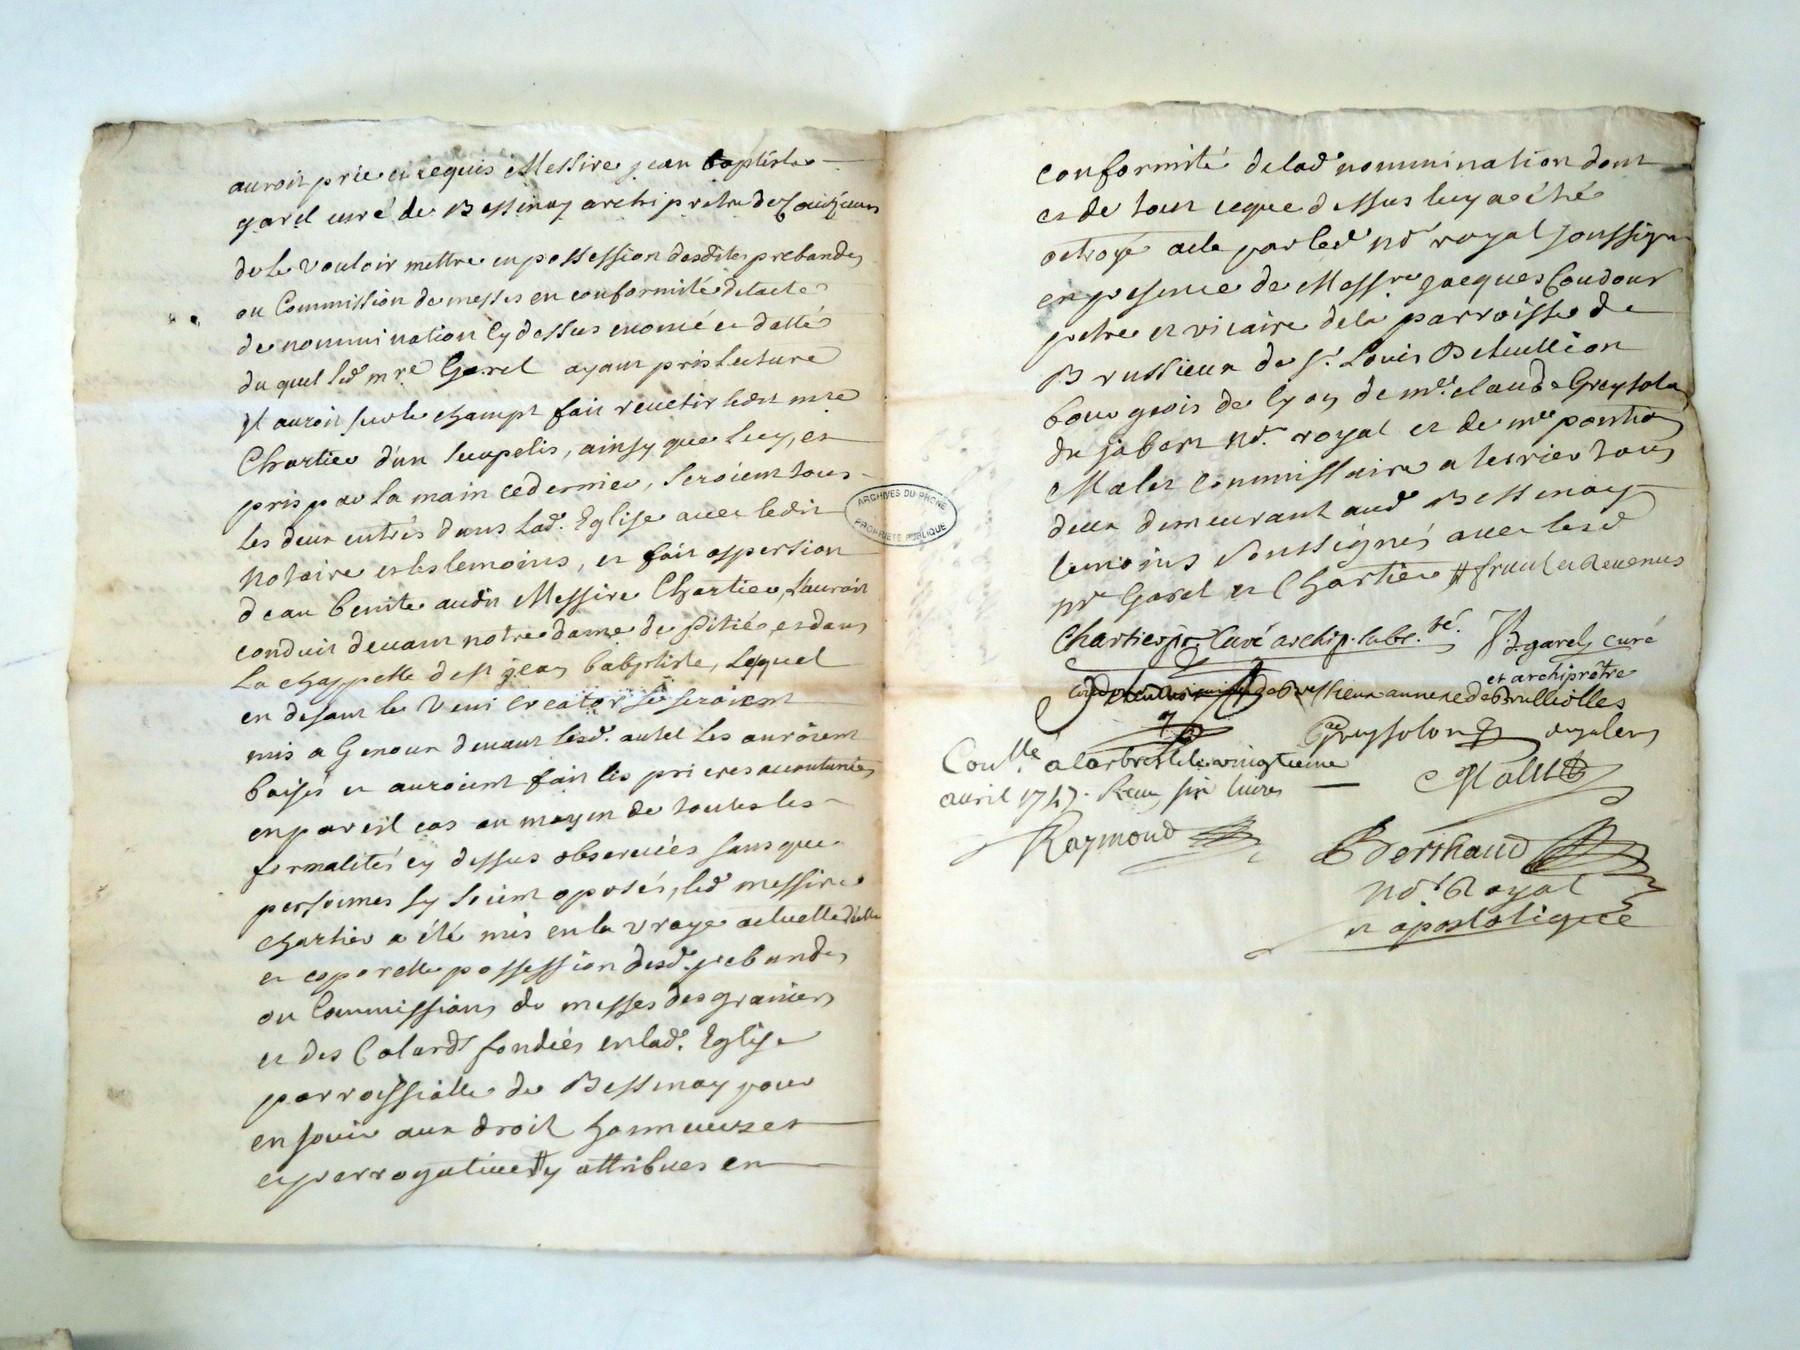 auroit prié et requis Messire jean baptiste
garel curé de Bessenay archipretre de Couzieux
de le vouloir mettre en possession desdites prebandes
ou Commission de messes en conformité de lacte
de nommination cy dessus enoncé et datté
du quel led mre Garel ayant pris lecture
Il auroit sur le champt fait revetir ledit mre
Chartier d'un surpelis, ainsy que luy, et
pris par la main ce dernier, seroient tous
les deux entrés dans lad. Eglise avec ledit
Notaire et les temoins, et fait aspersion
d eau benite audit Messire Chartier, l'auroit
conduit devant notre dame de Pitié et dans
La chappelle de st jean babptiste, Lequel
en disant le Veni Creator se seroient
mis a Genoux devant lesd. autel les auroient
baisés et auroient fait les prieres accoutumées
en pareil cas au moyen de toutes les
formalités cy dessus observées sans que
personnes sy soient oposés, led messire
Chartier a été mis en la vraye actuelle
et corporelle possession desd. prebandes
ou Commissions de messes des graniers
et des Calards fondées en lad. Eglise
parroissialle de Bessenay pour
en jouir aux droit honneurs et
et perrogatives y attribues en
conformité de lad nommination dont
et de tout ce que dessus luy a été
octroyé acte par led nre royal soussigné
en presence de Messire jacques Coudour
pretre et vicaire de la parroisse de
Brussieux de sr. Louis
bourgeois de lyon de mre. claude Greysolon
du jobert nre. royal et de mre
Malet commissaire a terrier tous
deux demeurant aud Bessenay
temoins soussignés avec lesd
mre Garel et Chartier # fruit et Revenus
Chartier archip.
JB garel curé
et archiprêtre
de Brussieux annexe de Brullioles
Greysolon
Malet
Coulle. a larbresle le vingtieme
avril 1747. Reçu six livres
Raymond
Berthaud
Nre Royal
et apostolique
ARCHIVES DU RHÔNE
PROPRIÉTÉ PUBLIQUE